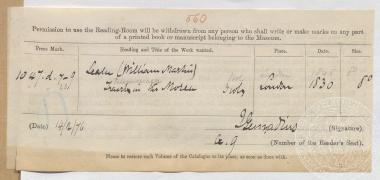 560
Permission to use the Reading-Room will be withdrawn from any person who shall write or make marks on any part
of a printed book or manuscript belonging to the Museum.
Press Mark. Heading and Title of the Work wanted. Place. Date. Size.
1047.d.7-9 Leake (William Martin) London 1830 8o
Travels in the Morea 3 vols
(Date) 14/2/76 J Gennadius (Signature).
(Number of the Reader's Seat).
Please to restore each Volume of the Catalogue to its place, as soon as done with.